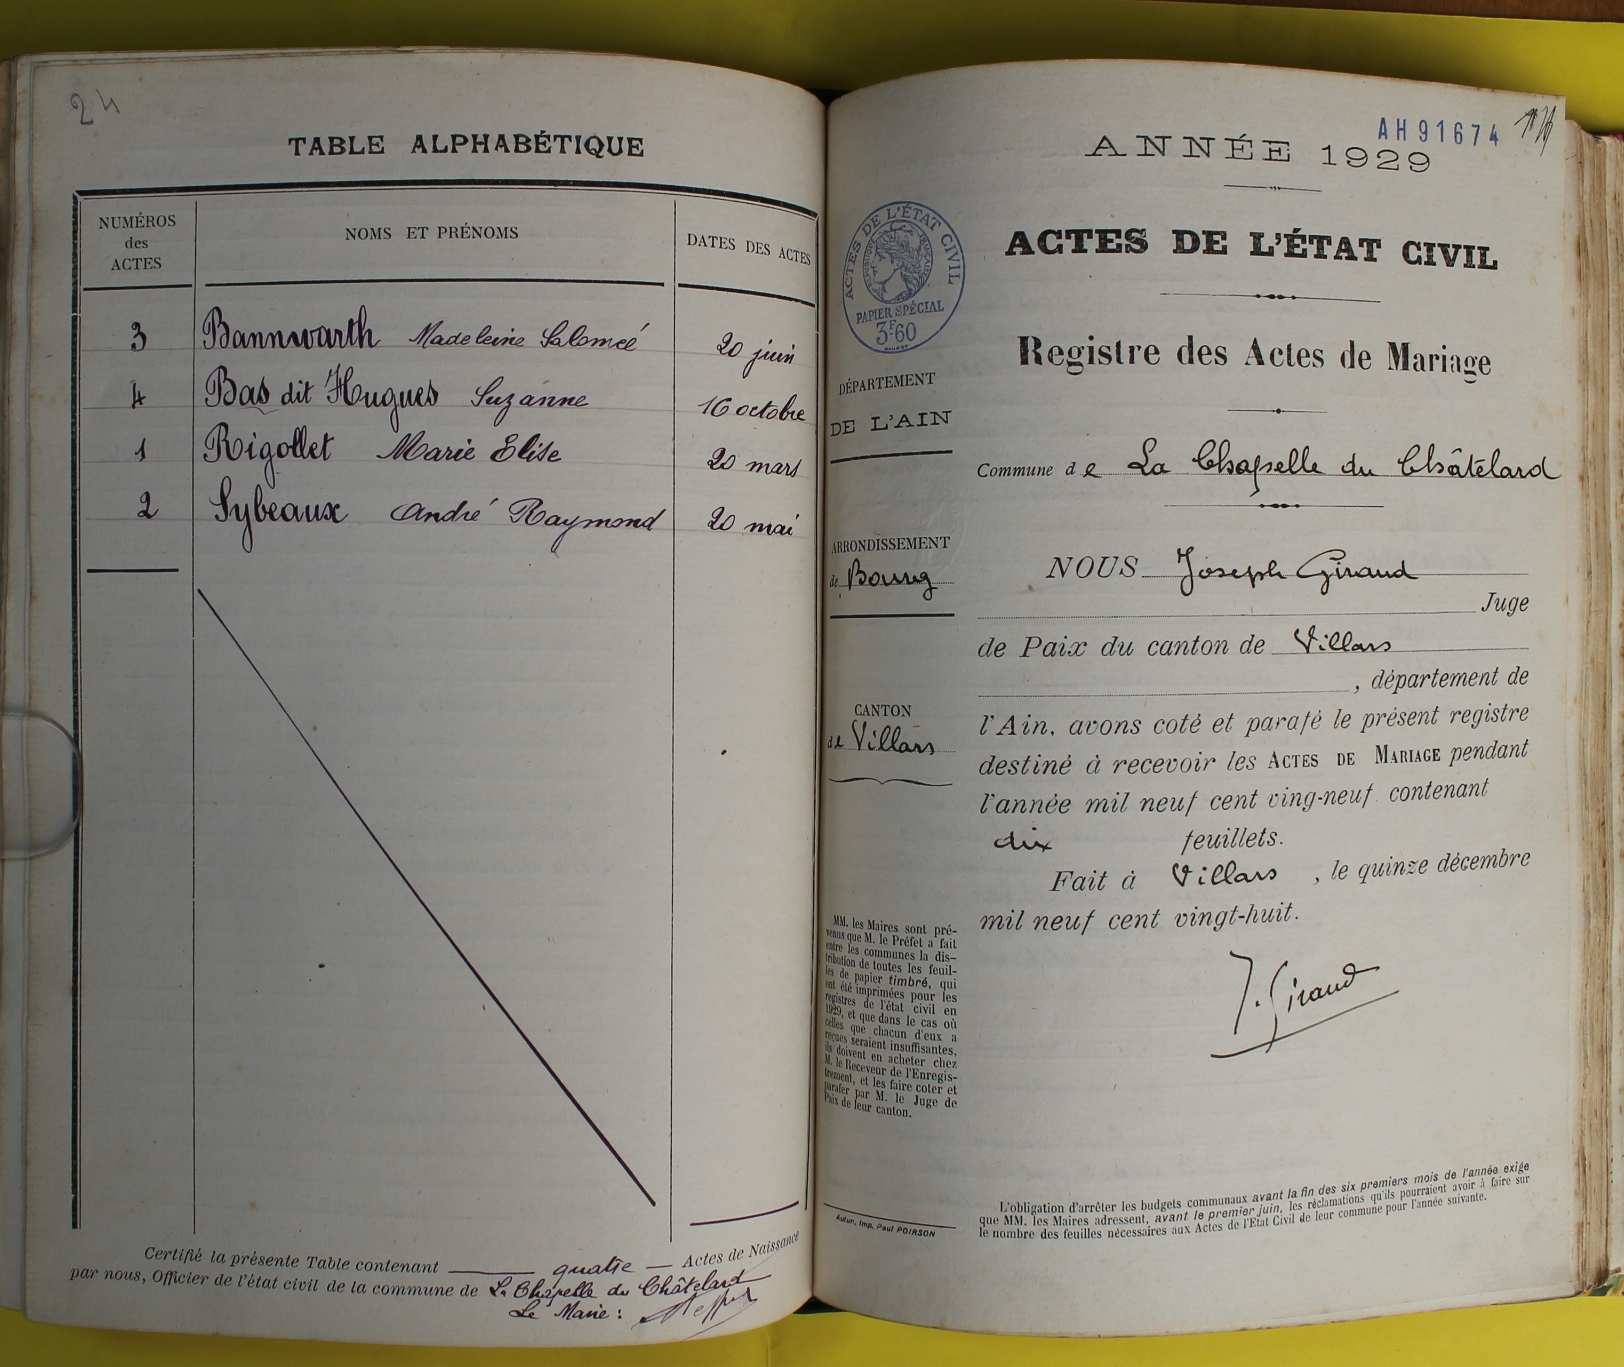 24
TABLE ALPHABÉTIQUE
NUMÉROS
des
ACTES
NOMS ET PRÉNOMS
DATES DES ACTES
3 Bannwarth Madeleine Salomée 20 juin
4 Bas dit Hugues Suzanne 16 octobre
1 Rigollet Marie Elise 20 mars
2 Sybeaux André Raymond 20 mai
Certifié la présente Table contenant quatre Actes de Naissance
par nous, Officier de l'état civil de la commune de La Chapelle du Châtelard
Le Maire :
AH91674
ANNÉE 1929
ACTES DE L'ÉTAT CIVIL
PAPIER SPÉCIAL
3F.60
ACTES DE L'ÉTAT CIVIL
Registre des Actes de Mariage
DÉPARTEMENT
DE L'AIN
Commune de La Chapelle du Châtelard
ARRONDISSEMENT
de Bourg
CANTON
de Villars
NOUS Joseph Giraud
Juge
de Paix du canton de Villars
, département de
l'Ain, avons coté et parafé le présent registre
destiné à recevoir les ACTES DE MARIAGE pendant
l'année mil neuf cent ving-neuf contenant
dix feuillets.
Fait à Villars , le quinze décembre
mil neuf cent vingt-huit.
J. Giraud
MM. les Maires sont pré-
venus que M. le Préfet a fait
entre les communes la dis-
tribution de toutes les feuil-
les de papier timbré, qui
ont été imprimées pour les
registres de l'état civil en
1929, et que dans le cas où
celles que chacun d'eux a
reçues seraient insuffisantes,
ils doivent en acheter chez
M. le Receveur de l'Enregis-
trement, et les faire coter et
parafer par M. le Juge de
Paix de leur canton.
Autun, Imp. Paul POIRSON
L'obligation d'arrêter les budgets communaux avant la fin des six premiers mois de l'année exige
que MM. les Maires adressent, avant le premier juin, les réclamations qu'ils pourraient avoir à faire sur
le nombre des feuilles nécessaires aux Actes de l'Etat Civil de leur commune pour l'année suivante.